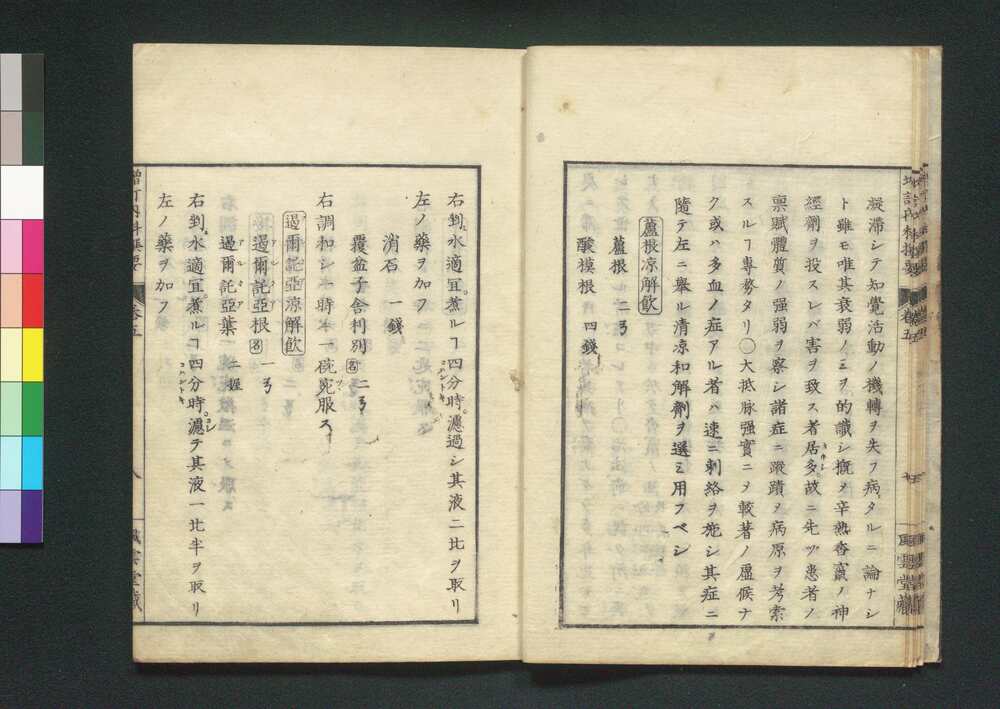 凝滞シテ知覺活動ノ機轉ヲ失フ病タルニ論ナシ
ト雖モ唯其衰弱ノミヲ的識シ概メ辛熱香竄ノ神
經劑ヲ投スレバ害ヲ致ス者居多故ニ先ツ患者ノ
稟賦體質ノ强弱ヲ察シ諸症ニ蹤蹟メ病原ヲ考索
スルヿ專務タリ○大抵脉强實ニメ較著ノ虛候ナ
ク或ハ多血ノ症アル者ハ速ニ刺絡ヲ施シ其症ニ
隨テ左ニ舉ル清涼和解劑ヲ選ミ用フベシ
蘆根凉解飲
蘆根 二ㄢ
酸摸根 四錢
右剉水適宜煮ルヿ四分時濾過シ其液二比ヲ取リ
左ノ藥ヲ加フ
消石 一錢
覆盆子舍利別 二ㄢ
右調和シ一時本一碗宛服ス
過爾託亞涼解飲
過爾託亞根 一ㄢ
過爾託亞葉 一握
右剉水適宜煮ルヿ四分時濾テ其液一比半ヲ取リ
左ノ藥ヲ加フ